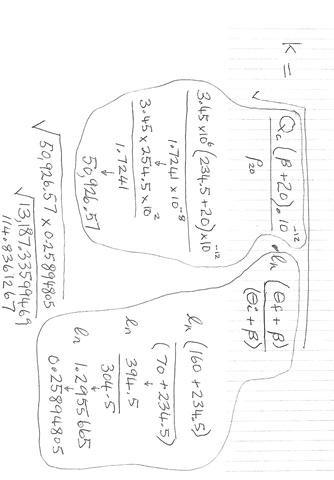 K =
√ Qc (β + 20) . 10⁻¹² . ln (θf + β)
ρ20 (θi + β)
3.45 x 10⁶ (234.5 + 20) x 10⁻¹²
1.7241 x 10⁻⁸
↓
3.45 x 254.5 x 10⁻²
1.7241
↓
50,926.57
ln (160 + 234.5)
(70 + 234.5)
↓
ln 394.5
304.5
↓
ln 1.2955665
↓
0.25894805
√ 50,926.57 x 0.25894805
√ 13,187.33599469
114.8361267